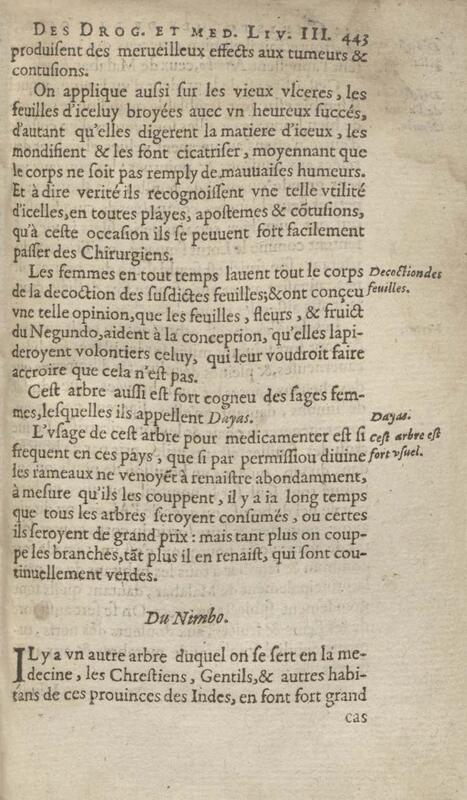 DES DROG. ET MED. LIV. III. 443
produiſent des merueilleux effects aux tumeurs &
contuſions.
On applique auſsi ſur les vieux vlceres, les
feuilles d'iceluy broyées auec vn heureux ſuccés,
d'autant qu'elles digerent la matiere d'iceux, les
mondifient & les font cicatriſer, moyennant que
le corps ne ſoit pas remply de mauuaiſes humeurs.
Et à dire verité ils recognoiſſent vne telle vtilité
d'icelles, en toutes playes, apoſtemes & cõtuſions,
qu'à ceſte occaſion ils ſe peuuent fort facilement
paſſer des Chirurgiens.
Les femmes en tout temps lauent tout le corps
de la decoction des ſuſdictes feuilles; & ont conçeu
vne telle opinion, que les feuilles, fleurs, & fruict
du Negundo, aident à la conception, qu'elles lapi-
deroyent volontiers celuy, qui leur voudroit faire
accroire que cela n'eſt pas.
Decoction des
feuilles.
Ceſt arbre auſsi eſt fort cogneu des ſages fem-
mes, leſquelles ils appellent Dayas.
L'vſage de ceſt arbre pour medicamenter eſt ſi
frequent en ces pays, que ſi par permiſsiou diuine
les rameaux ne venoyẽt à renaiſtre abondamment,
à meſure qu'ils les couppent, il y a ia long temps
que tous les arbres ſeroyent conſumés, ou certes
ils ſeroyent de grand prix : mais tant plus on coup-
pe les branches, tãt plus il en renaiſt, qui ſont cou-
tinuellement verdes.
Dayas.
ceſt arbre eſt
fort vſuel.
Du Nimbo.
IL y a vn autre arbre duquel on ſe ſert en la me-
decine, les Chreſtiens, Gentils, & autres habi-
tans de ces prouinces des Indes, en font fort grand
cas